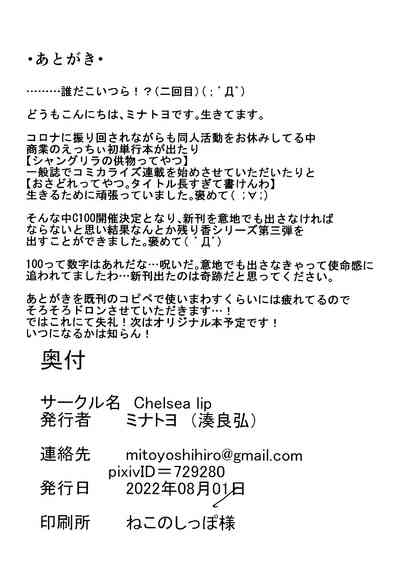 ・あとがき・
………誰だこいつら！？(二回目)(；ﾟДﾟ)
どうもこんにちは、ミナトヨです。生きてます。
コロナに振り回されながらも同人活動をお休みしてる中
商業のえっちぃ初単行本が出たり
【シャングリラの供物ってやつ】
一般誌でコミカライズ連載を始めさせていただいたりと
【おさどれってやつ。タイトル長すぎて書けんわ】
生きるために頑張っていました。褒めて( ；∀；)
そんな中C100開催決定となり、新刊を意地でも出さなければ
ならないと思い結果なんとか残り香シリーズ第三弾を
出すことができました。褒めて( ﾟДﾟ)
100って数字はあれだな…呪いだ。意地でも出さなきゃって使命感に
追われてましたわ…新刊出たのは奇跡だと思ってください。
あとがきを既刊のコピペで使いまわすくらいには疲れてるので
そろそろドロンさせていただきます…！
ではこれにて失礼！次はオリジナル本予定です！
いつになるかは知らん！
奥付
サークル名　Chelsea lip
発行者　ミナトヨ（湊良弘）
連絡先　mitoyoshihiro@gmail.com
pixivID＝729280
発行日　2022年08月01日
印刷所　ねこのしっぽ様